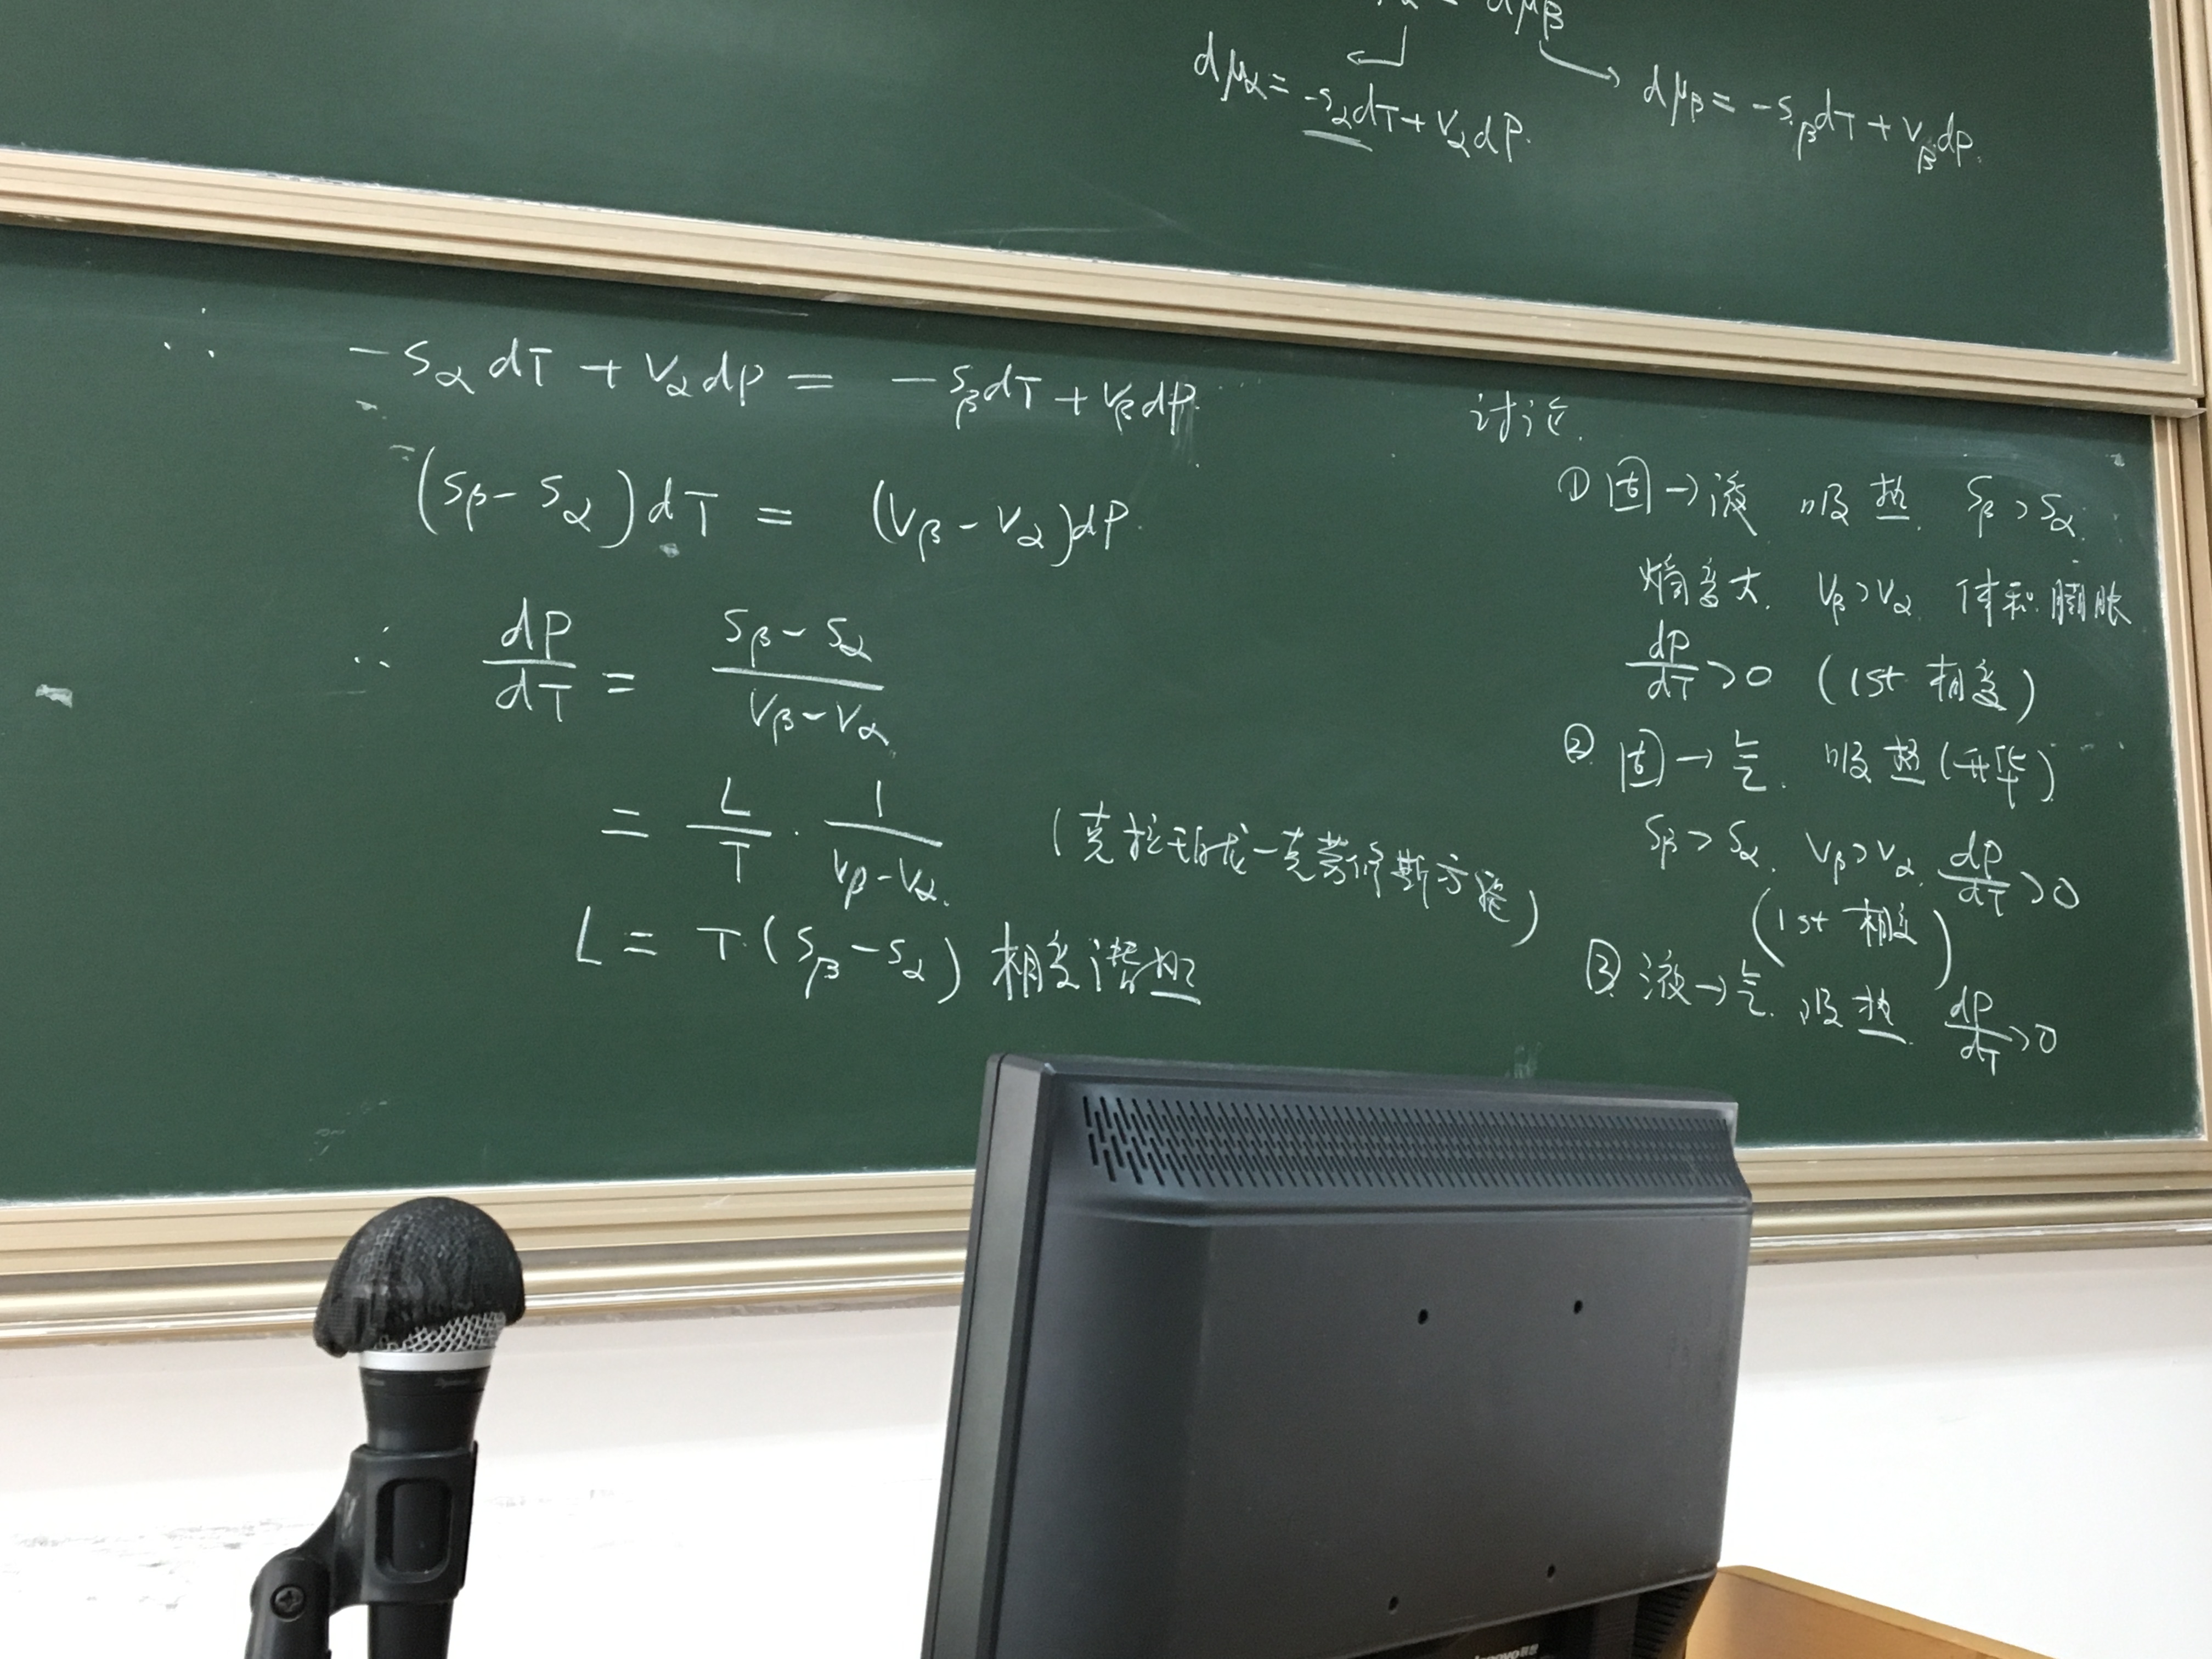 dμβ
dμα = -sαdT + vαdP.
dμβ = -sβdT + vβdp.
∴ -sαdT + vαdp = -sβdT + vβdp.
(sβ - sα)dT = (vβ - vα)dP.
∴ dP/dT = (sβ - sα)/(vβ - vα)
= L/T · 1/(vβ - vα) (克拉珀龙-克劳修斯方程)
L = T(sβ - sα) 相变潜热
讨论.
① 固→液 吸热. sβ > sα.
熵变大. vβ > vα 体积膨胀
dP/dT > 0 (1st 相变)
② 固→气. 吸热(升华)
sβ > sα. vβ > vα. dP/dT > 0
(1st 相变)
③ 液→气. 吸热 dP/dT > 0